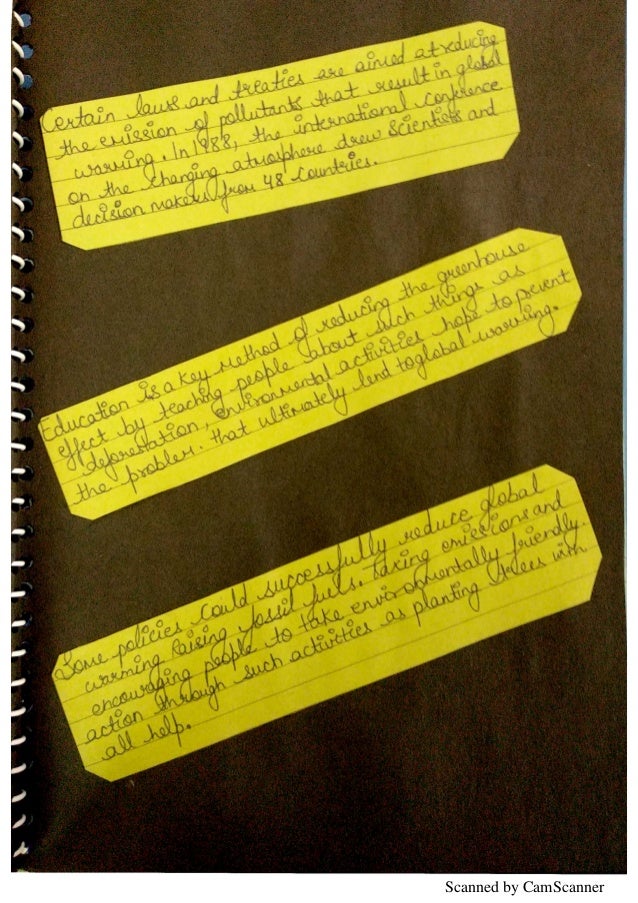 Certain laws and treaties are aimed at reducing
the emission of pollutants that result in global
warming. In 1988, the international conference
on the changing atmosphere drew scientists and
decision makers from 48 countries.
Education is a key method of reducing the greenhouse
effect by teaching people about such things as
deforestation, environmental activities hope to prevent
the problem. that ultimately lend to global warming.
Some policies could successfully reduce global
warming Raising fossil fuels. taxing emissions and
encouraging people to take environmentally friendly.
action through such activities as planting trees with
all help.
Scanned by CamScanner